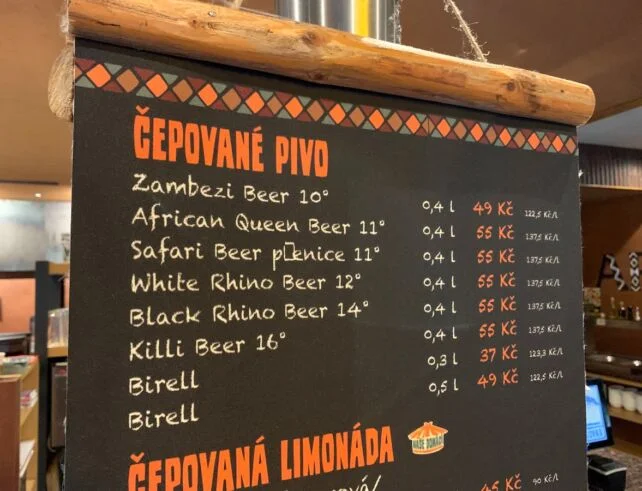 ČEPOVANÉ PIVO
Zambezi Beer 10° 0,4 l 49 Kč 122,5 Kč/l
African Queen Beer 11° 0,4 l 55 Kč 137,5 Kč/l
Safari Beer p□enice 11° 0,4 l 55 Kč 137,5 Kč/l
White Rhino Beer 12° 0,4 l 55 Kč 137,5 Kč/l
Black Rhino Beer 14° 0,4 l 55 Kč 137,5 Kč/l
Killi Beer 16° 0,4 l 55 Kč 137,5 Kč/l
Birell 0,3 l 37 Kč 123,3 Kč/l
Birell 0,5 l 49 Kč 122,5 Kč/l
ČEPOVANÁ LIMONÁDA NAŠE DOMÁCÍ
45 Kč 90 Kč/l